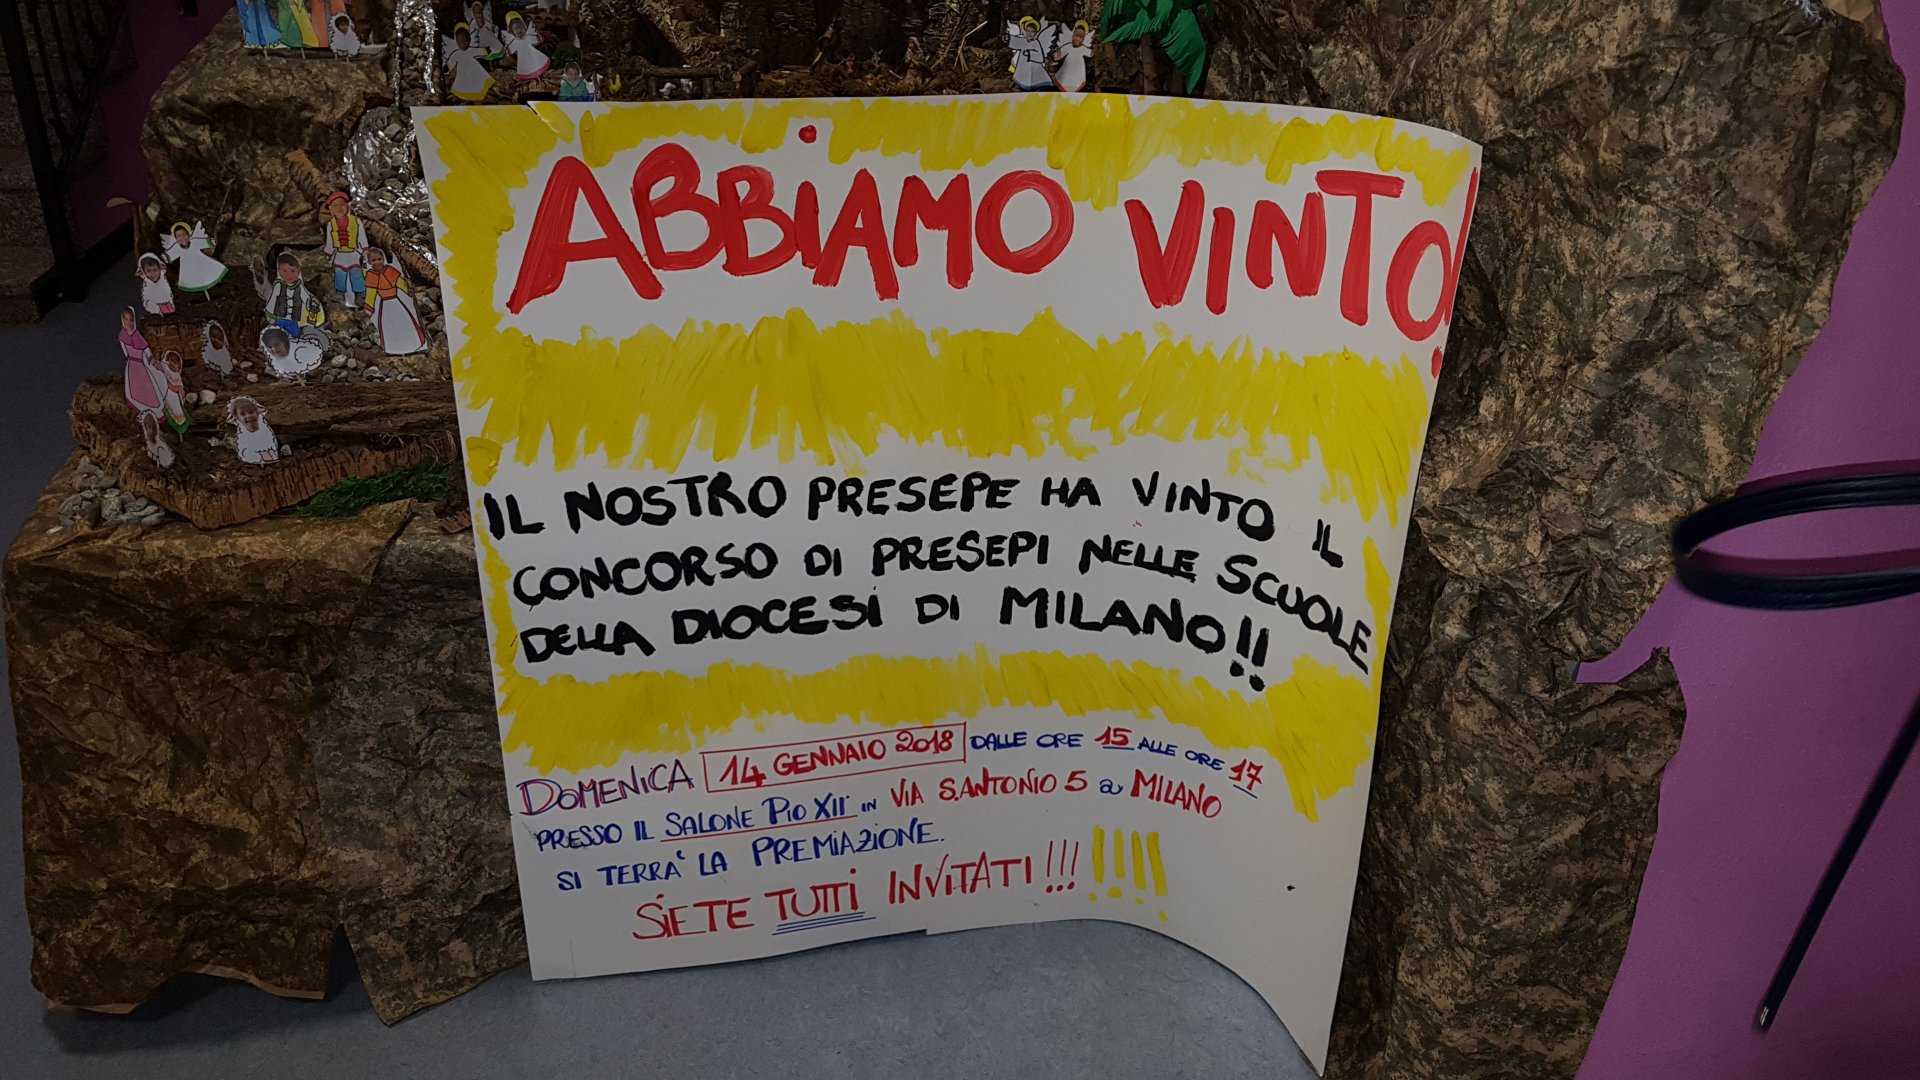 ABBiAMO VINTO!
IL NOSTRO PRESEPE HA VINTO IL
CONCORSO DI PRESEPI NELLE SCUOLE
DELLA DIOCESI DI MILANO!!
DOMENICA 14 GENNAIO 2018 DALLE ORE 15 ALLE ORE 17
PRESSO IL SALONE PIO XII IN VIA S.ANTONIO 5 a MILANO
SI TERRA' LA PREMIAZIONE.
SIETE TUTTI INVITATI!!!!!!!